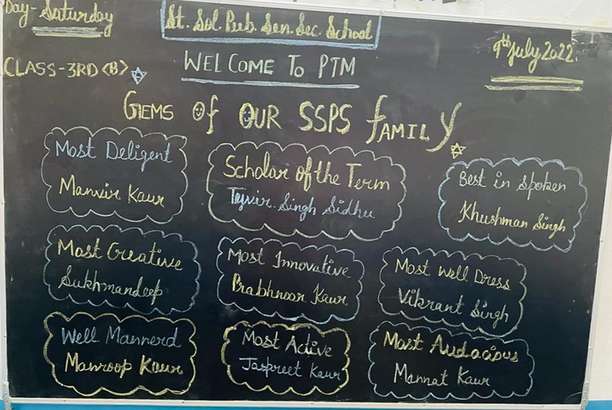 Day- Saturday
St. Sol. Pub. Sen. Sec. School
9th July 2022.
CLASS-3RD <B>
WELCOME TO PTM
GEMS OF OUR SSPS FAMILY
Most Deligent
Manvir Kaur
Scholar of the Term
Tejvir Singh Sidhu
Best in Spoken
Khushman Singh
Most Creative
Sukhmandeep
Most Innovative
Prabhnoor Kaur
Most Well Dress
Vikrant Singh
Well Mannerd
Manroop Kaur
Most Active
Jaspreet Kaur
Most Audacious
Mannat Kaur